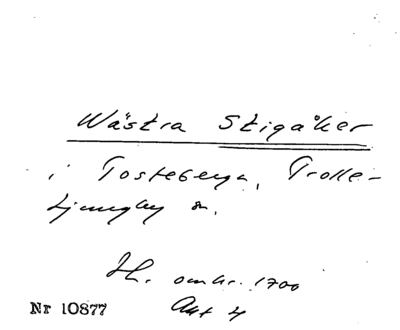 Wästra Stigåker
i Tosteberga, Trolle-
Ljungby sn.
H. omkr. 1700
Akt 4
Nr 10877